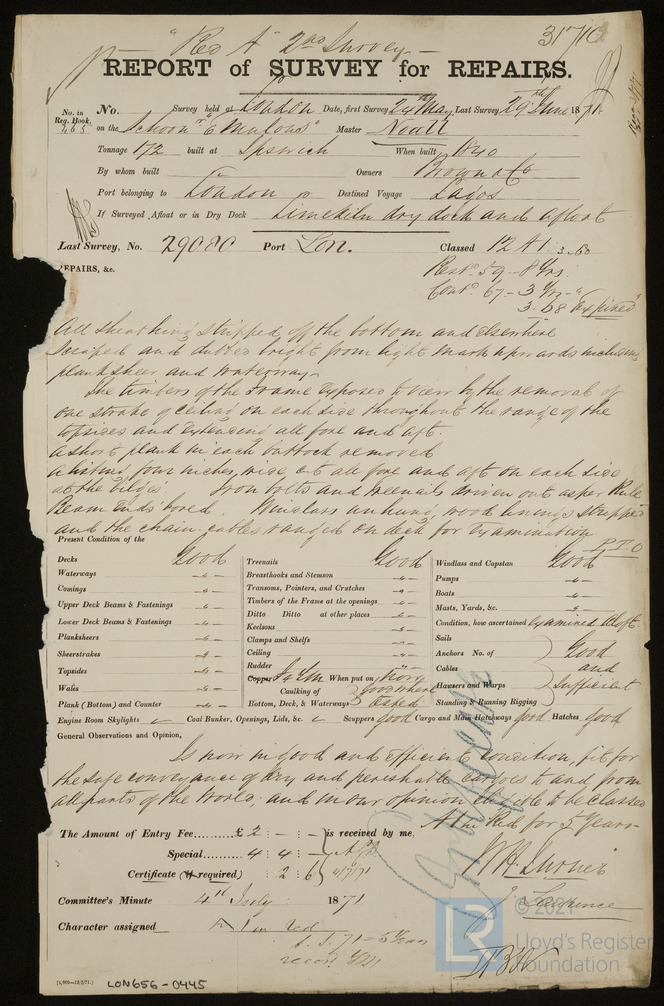 "Red A" 2nd Survey
31710
REPORT of SURVEY for REPAIRS.
No. in Reg. Book. 465
No. Survey held at London Date, first Survey 24th May Last Survey 29th June 1871
on the Schoonr Master Noall
Tonnage 172 built at Ipswich When built 1840
By whom built Owners Brown & Co
Port belonging to London Destined Voyage Lagos
If Surveyed Afloat or in Dry Dock Limekiln dry dock and afloat
Last Survey, No. 29080 Port Lon. Classed 12 A1 3.60
Rest. 59-8 Yrs.
Cont. 67-3 Yrs
3.68 Expired
REPAIRS, &c.
All sheathing stripped off the bottom and elsewhere
scraped and dubbed bright from light mark upwards inclusive
planksheer and waterway.
The timbers of the Frame exposed to view by the removal of
one strake of ceiling on each side throughout the range of the
topsides and extending all fore and aft.
A short plank in each buttock removed
A listing four inches wide cut all fore and aft on each side
at the bilges. Iron bolts and treenails driven out as per Rule
Beam ends bored. Windlass unhung, wood linings stripped
and the chain cables ranged on deck for Examination
P.T.O
Present Condition of the
Decks Good
Waterways " 
Comings "
Upper Deck Beams & Fastenings "
Lower Deck Beams & Fastenings "
Planksheers "
Sheerstrakes "
Topsides "
Wales "
Plank (Bottom) and Counter "
Treenails Good
Breasthooks and Stemson "
Transoms, Pointers, and Crutches "
Timbers of the Frame at the openings "
Ditto Ditto at other places "
Keelsons "
Clamps and Shelfs "
Ceiling "
Rudder "
Copper When put on Now
Caulking of Bottom, Deck, & Waterways Good where tested
Windlass and Capstan Good
Pumps "
Boats "
Masts, Yards, &c. "
Condition, how ascertained Examined aloft.
Sails
Anchors No. of
Cables
Hawsers and Warps
Standing & Running Rigging
Good and sufficient
Engine Room Skylights Coal Bunker, Openings, Lids, &c. Scuppers good Cargo and Main Hatchways good Hatches good
General Observations and Opinion,
Is now in good and efficient condition, fit for
the safe conveyance of dry and perishable cargoes to and from
all parts of the World, and in our opinion eligible to be classed
A in Red for 5 Years
The Amount of Entry Fee......... £ 2 : - : - is received by me,
Special......... 4 : 4 : -
Certificate (if required) 2 : 6
4/7/71
Committee's Minute 4th July 1871
Character assigned A 1 in red
5 Years
J. Lawrence
© 2021
Lloyd's Register
Foundation
LR
[1,000—13/2/71.]
LON656-0445